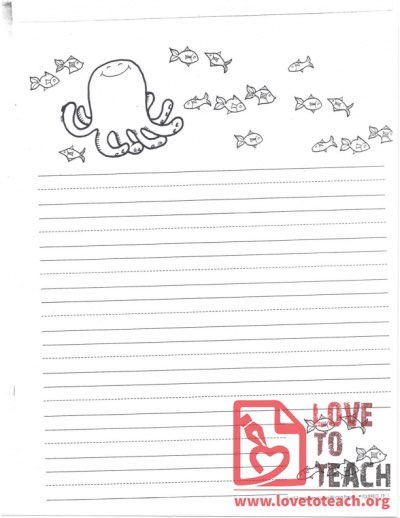 LOVE
TO
TEACH
www.lovetoteach.org